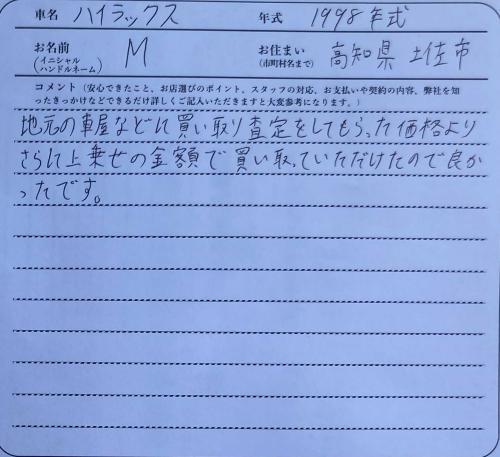 車名 ハイラックス 年式 1998年式
お名前 (イニシャル ハンドルネーム) M お住まい (市町村名まで) 高知県 土佐市
コメント（安心できたこと、お店選びのポイント、スタッフの対応、お支払いや契約の内容、弊社を知
ったきっかけなどできるだけ詳しくご記入いただきますと大変参考になります。）
地元の車屋などに買い取り査定をしてもらった価格より
さらに上乗せの金額で買い取っていただけたので良か
ったです。